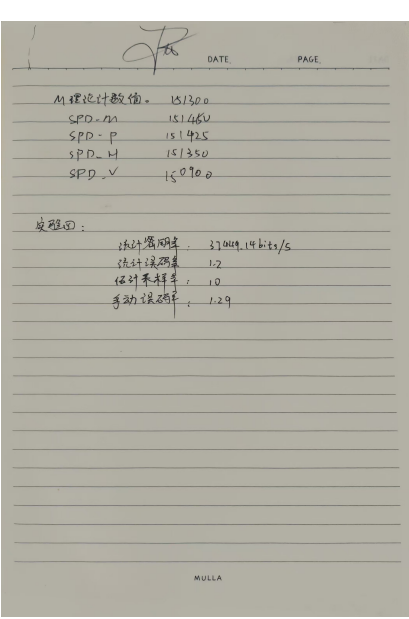 DATE. PAGE.
M理论计数值。 151300
SPD-M 151450
SPD-P 151425
SPD-H 151350
SPD-V 150900
实验四:
估计密钥率: .14bits/s
估计误码率 1.2
估计采样率: 10
手动误码率: 1.29
MULLA